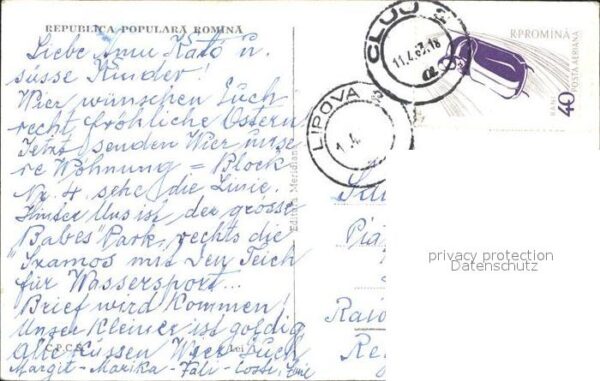 REPUBLICA POPULARĂ ROMÎNĂ
Liebe Anni Kató u.
süsse Kinder!
Wier wünschen Euch
recht fröhliche Ostern
Jetzt senden Wier unse
re Wöhnung = Block
Nr. 4. sehe die Linie.
Hinter Uns ist der grosse
"Babes" Park, rechts die
"Szamos mit Den Teich
für Wassersport...
Brief wird Kommen!
Unser Kleiner ist goldig
Alle Küssen Wier Euch
Margit - Marika - Fali -
Editura Meridiane
C.P.C.S.
Lei
CLUJ
11.4.63.18
LIPOVA
R.P.ROMÎNĂ
POSTA AERIANĂ
BANI
40
Raio
privacy protection
Datenschutz